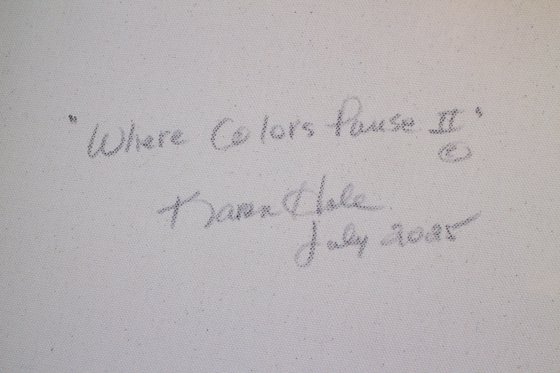 "Where Colors Pause II"
©
Karen Hale
July 2025